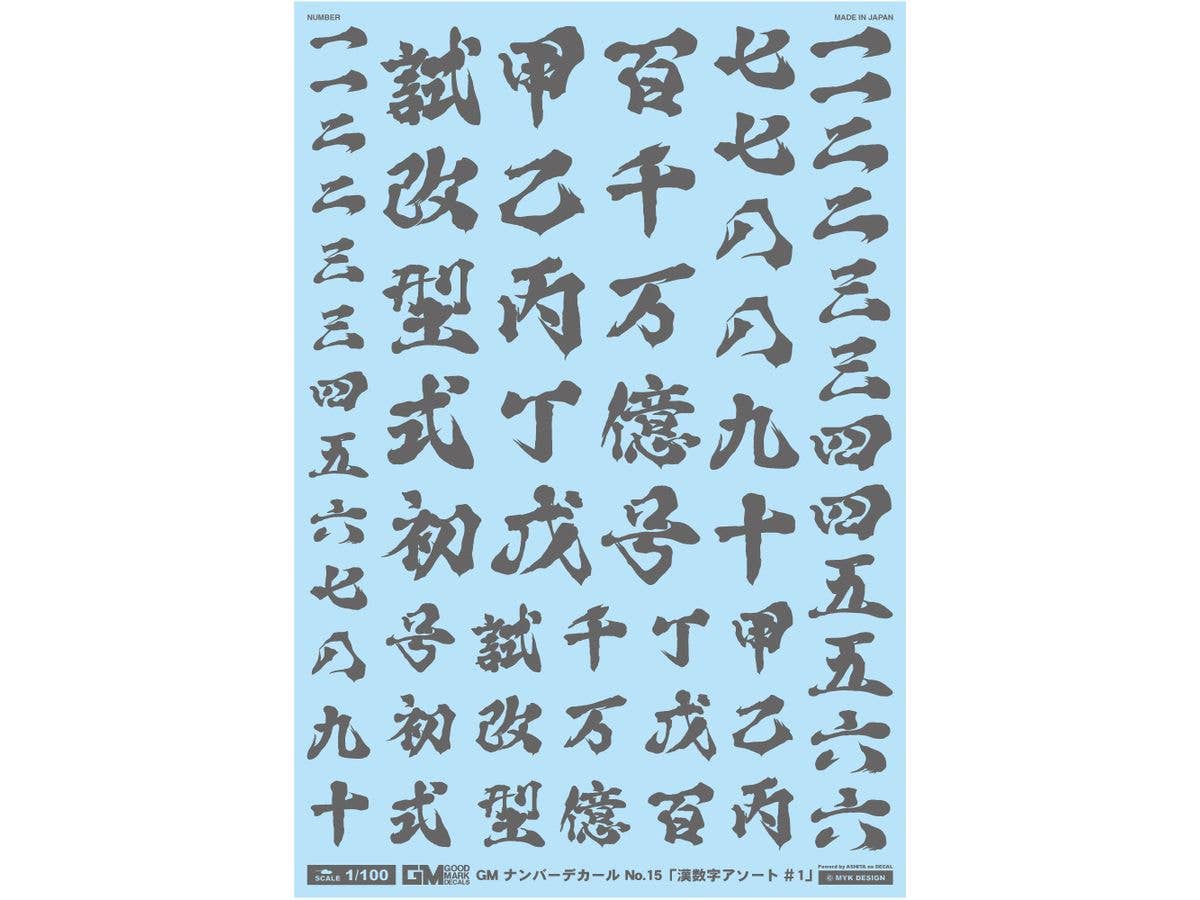 NUMBER
MADE IN JAPAN
一
一
二
二
三
三
四
五
六
七
八
九
十
試 甲 百
改 乙 千
型 丙 万
式 丁 億
初 戊 号
七
七
八
八
九
十
号 試 千 丁 甲
初 改 万 戊 乙
式 型 億 百 丙
一
一
二
二
三
三
四
四
五
五
六
六
SCALE 1/100
GM GOOD MARK DECALS
GM ナンバーデカール No.15「漢数字アソート #1」
Powered by ASHITA no DECAL
© MYK DESIGN